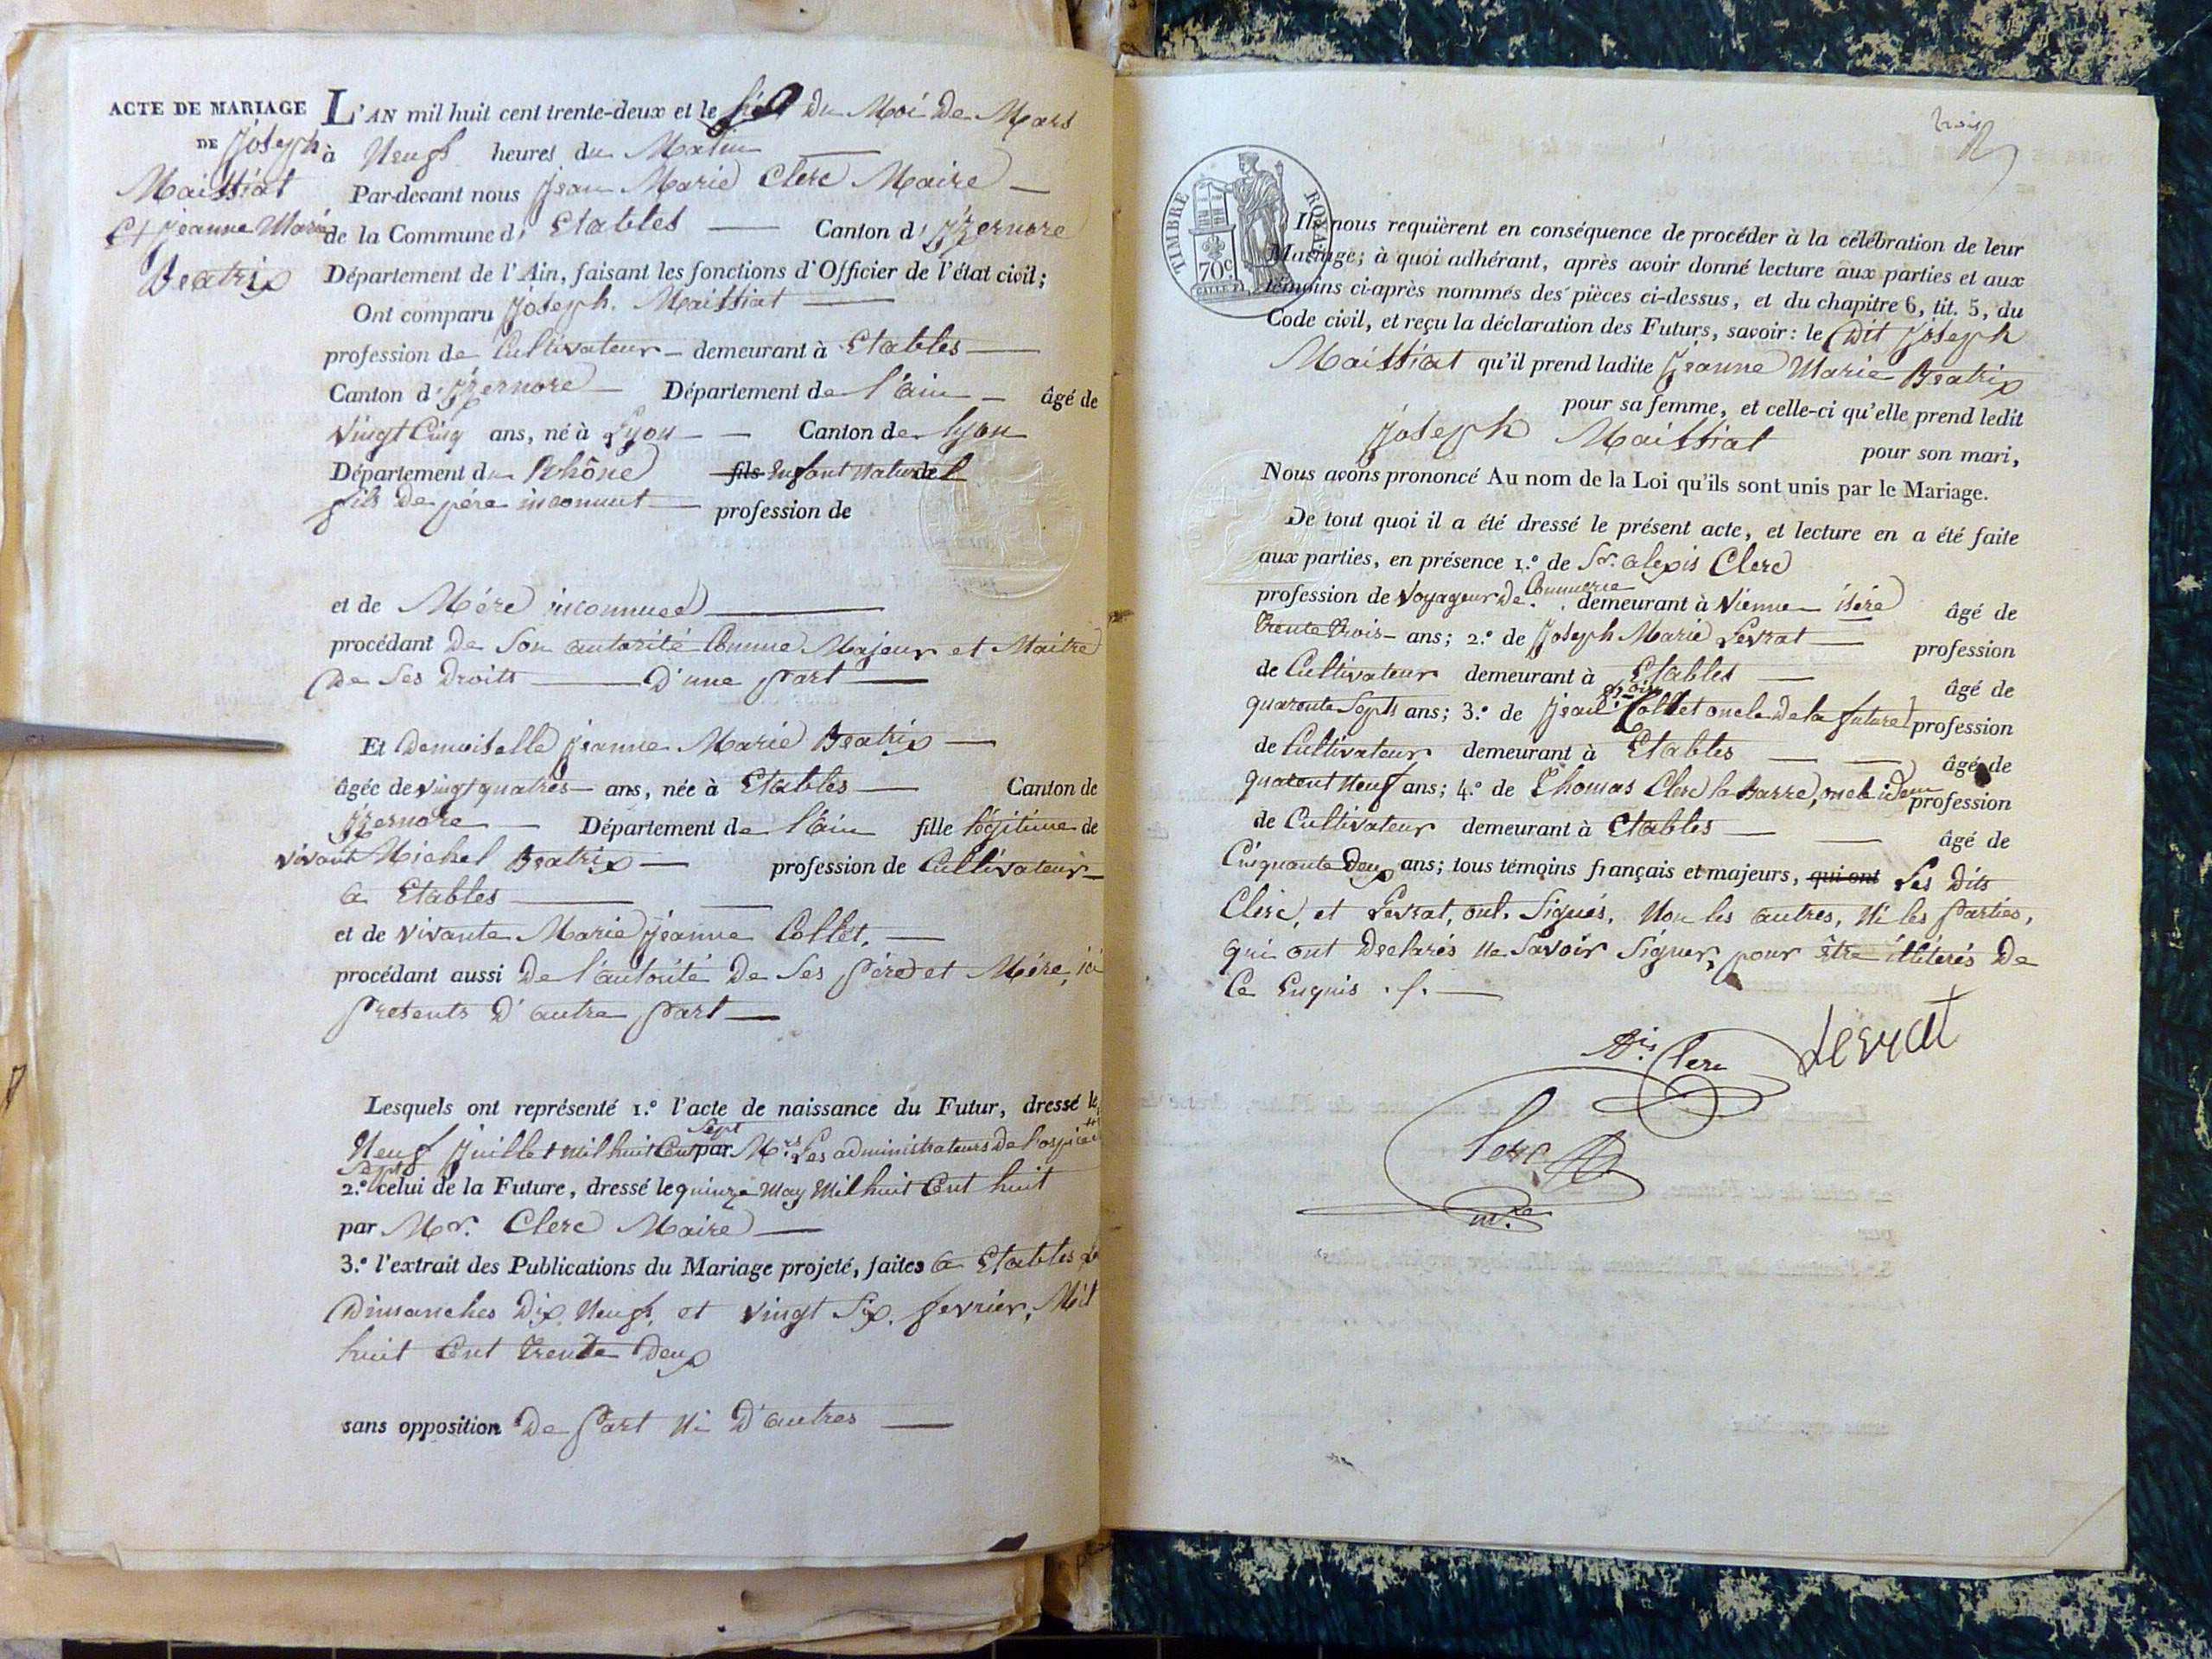 ACTE DE MARIAGE
DE Joseph
Maissiat
Et Jeanne Marie
Beatrix
L'AN mil huit cent trente-deux et le du Moi De Mars
à Neufs heures du Matin
Par-devant nous Jean Marie Clerc Maire
de la Commune d' Etables Canton d' Izernore
Département de l'Ain, faisant les fonctions d'Officier de l'état civil;
Ont comparu Joseph Maissiat
profession de Cultivateur demeurant à Etables
Canton d' Izernore Département de l'ain âgé de
Vingt Cinq ans, né à Lyon Canton de lyon
Département du Rhône fils Enfant Naturel
fils De père inconnut profession de
et de Mére inconnue
procédant De Son autorité Comme Majeur et Maitre
De Ses Droits D'une part
Et Demoiselle Jeanne Marie Beatrix
âgée de vingt quatres ans, née à Etables Canton de
Izernore Département de l'Ain fille légitime de
vivant Michel Beatrix profession de Cultivateur
a Etables
et de vivante Marie Jeanne Collet,
procédant aussi De l'autorité De Ses Pére et Mére, ici
Presents D'autre part
Lesquels ont représenté 1.° l'acte de naissance du Futur, dressé le
Neuf Juillet mil huit Cent Sept par Mrs Les administrateurs de l'ospice
2.° celui de la Future, dressé le quinze May Mil huit Cent huit
par Mr. Clerc Maire
3.° l'extrait des Publications du Mariage projeté, faites a Etables Le
Dimanches Dix Neufs, et vingt Six, fevrier, Mil
huit Cent Trente Deux
sans opposition De Part Ni D'autres
trois
TIMBRE ROYAL
70c
Ils nous requièrent en conséquence de procéder à la célébration de leur
Mariage; à quoi adhérant, après avoir donné lecture aux parties et aux
témoins ci-après nommés des pièces ci-dessus, et du chapitre 6, tit. 5, du
Code civil, et reçu la déclaration des Futurs, savoir: le Dit Joseph
Maissiat qu'il prend ladite Jeanne Marie Beatrix
pour sa femme, et celle-ci qu'elle prend ledit
Joseph Maissiat pour son mari,
Nous avons prononcé Au nom de la Loi qu'ils sont unis par le Mariage.
De tout quoi il a été dressé le présent acte, et lecture en a été faite
aux parties, en présence 1.° de Sr. alexis Clerc
profession de Voyageur De Commerce demeurant à Vienne isère âgé de
Trente Trois ans; 2.° de Joseph Marie Levrat profession
de Cultivateur demeurant à Etables âgé de
quarante Septs ans; 3.° de Jean Collet oncle De la future profession
de Cultivateur demeurant à Etables âgé de
quarent Neuf ans; 4.° de Thomas Clerc la Barre, oncle idem profession
de Cultivateur demeurant à Etables âgé de
Cinquante Deux ans; tous témoins français et majeurs, qui ont Les Dits
Clerc, et Levrat, ont Signés, Non les autres, Ni les Parties,
qui ont Declarés Ne Savoir Signer, pour être illiterés De
Ce Enquis
Ais Clerc Levrat
Clerc
mre